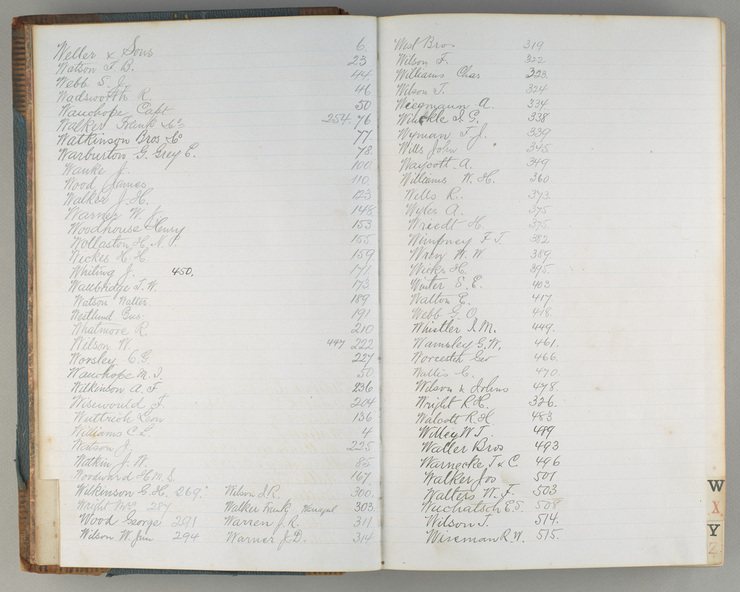 Weller & Sons 6.
Watson T. B. 23
Webb S. J. 44
Wadsworth R. 46
Wauchope Capt 50
Walker Frank & Co 254. 76
Watkinson Bros & Co 77.
Warburton G. Grey E. 78
Wanke J. 100
Wood James 110
Walker J. H. 123
Warner W. J. 148
Woodhouse Henry 153
Wollaston H. N. 155
Wickes H. H. 159
Whiting J. 450. 171
Wallbridge T. W. 173
Watson Walter 189
Westlund Gus. 191
Whatmore R. 210
Wilson W. 447 222
Worsley C. G. 227
Wauchope M. J. 50
Wilkinson A. F. 236
204
Wuttrich Leon 136
Williams C. E. 4
Watson J. 225
Watkin J. W. 86
Woodward H. M. S. 167
Wilkenson G. H. 269. Wilson J. R. 300.
Wright 287 Walker Frank 303.
Wood George 291 Warren J. R. 311
Wilson W. Jun 294 Warner J. D. 314
West Bros 319
Wilson F. 322
Williams Chas 323.
Wilson T. 324
Wiegmann A. 334
Winckle I. G. 338
Wyman T. J. 339
Wills John 345
Waycott A. 349
Williams W. H. 360
Wells R. 373
Wyler A. 375
H. 375
F. J. 382
Wray W. W 389
Wicks H. 395
Winter S. E. 403
Walton E. 417
Webb G. O. 418
Whistler J. M. 449.
Wamsley G. W. 461.
Worcester Geo 466.
Wallis C. 470.
Wilson & Johns 478.
Wright R. H. 326.
Walcott R H 483
Willey W T. 489
Waller Bros 493
Warnecke, J & C 496
Walker Jos 501
Walters W. F. 503
Wuchatsch E. T. 508
Wilson T. 514.
Wireman R. W. 515.
W
X
Y
Z